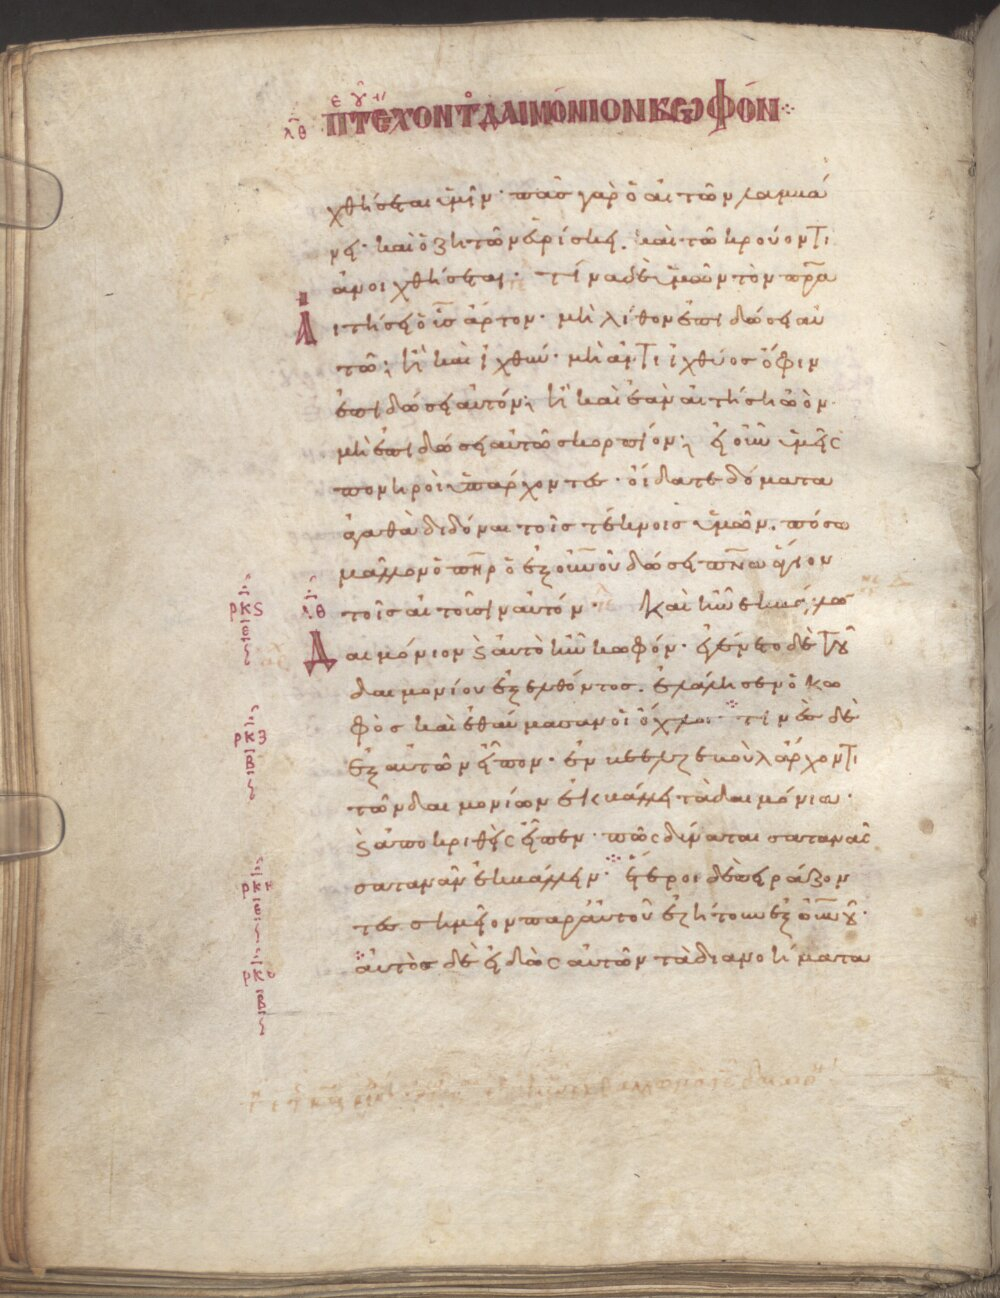 λθ π τȣ ἔχοντο δαιμόνιον κωφόν
χθήσεται ὑμῖν· πᾶς γὰρ ὁ αἰτῶν λαμβά
νει· καὶ ὁ ζητῶν εὑρίσκει. καὶ τῶ κρούοντι
ἀνοιχθήσεται· τίνα δὲ ὑμῶν τὸν πρα
αἰτήσει ὁ υἱσ ἄρτον· μὴ λίθον ἐπιδώσει αὐ
τῶ; ἢ καὶ ἰχθύν· μὴ ἀντι ἰχθύοσ ὄφιν
ἐπιδώσει αὐτόν; ἢ καὶ ἐὰν αἰτήση ὠὸν·
μὴ ἐπιδώσει αὐτῶ σκορπίον; εἰ οὖν ὑμεῖς
πονηροὶ ὑπάρχοντες· οἴδατε δόματα
ἀγαθὰ διδόναι τοῖσ τέκνοισ ὑμῶν. πόσω
μᾶλλον ὁ πηρ ὁ ἐξ οὐνοῦ δώσει πνα ἅγιον
ρκς λθ τοῖσ αἰτοῦσιν αὐτόν· Καὶ ἦν ἐκβάλλων
δαιμόνιον ϛ αὐτὸ ἦν κωφόν· ἐγένετο δὲ τȣ
δαιμονίου ἐξελθόντοσ. ἐλάλησεν ὁ κω
φὸσ καὶ ἐθαύμασαν οἱ ὄχλοι· τινὲσ δὲ
ρκζ β ἐξ αὐτῶν εἶπον· ἐν βεελζεβοὺλ ἄρχοντι
τῶν δαιμονίων ἐκβάλλει τὰ δαιμόνια·
ϛ ἀποκριθεὶς εἶπεν· πῶς δύναται σατανᾶς
ρκη ε σατανᾶν ἐκβάλλειν· ἕτεροι δὲ πειράζον
τεσ σημεῖον παρ αὐτοῦ ἐζήτουν ἐξ οὐνȣ·
ρκθ β αὐτὸσ δὲ εἰδὼς αὐτῶν τὰ διανοήματα